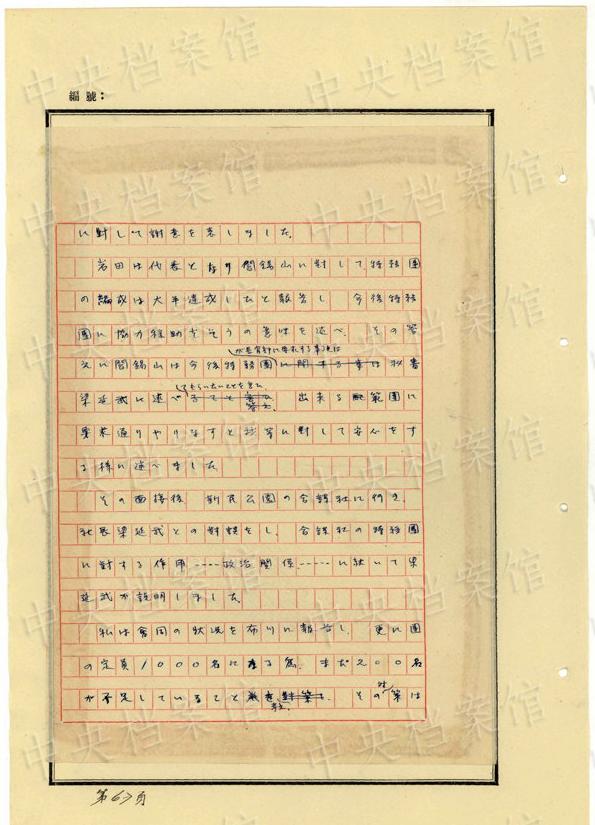 編號：
に對して謝意を表しました。
岩田は代表となり閻錫山に對して特務團
の編成は大半達成したと報告し 今後特務
團に協力援助をそうの意味を述べ、その答
が考有針に
えに閻錫山は今後特務團に関する事は秘書
してもらいたいことを言い
梁延武に述べ 出来る範圍に
要求通りやりなすと 等に對して安心をす
る様に述べました。
その面接後 新民公園の合謀社に行き、
社長梁延武との對談をし、合謀社の特務團
に對する作用……政治関係……に就いて梁
延武が説明しました。
私は會同の狀況を布川に報告し、更に團
の定員1000名に 爲、まだ200名
が不足していること その 策は
対
第67頁
中央档案馆